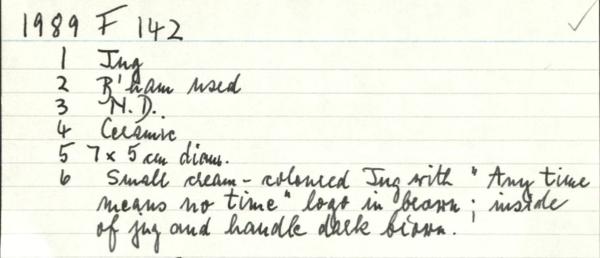 1989 F 142
1 Jug
2 B'ham used
3 N.D.
4 Ceramic
5 7 x 5 cm diam.
6 Small cream-coloured Jug with "Any time
means no time" logo in brown; inside
of jug and handle dark brown.